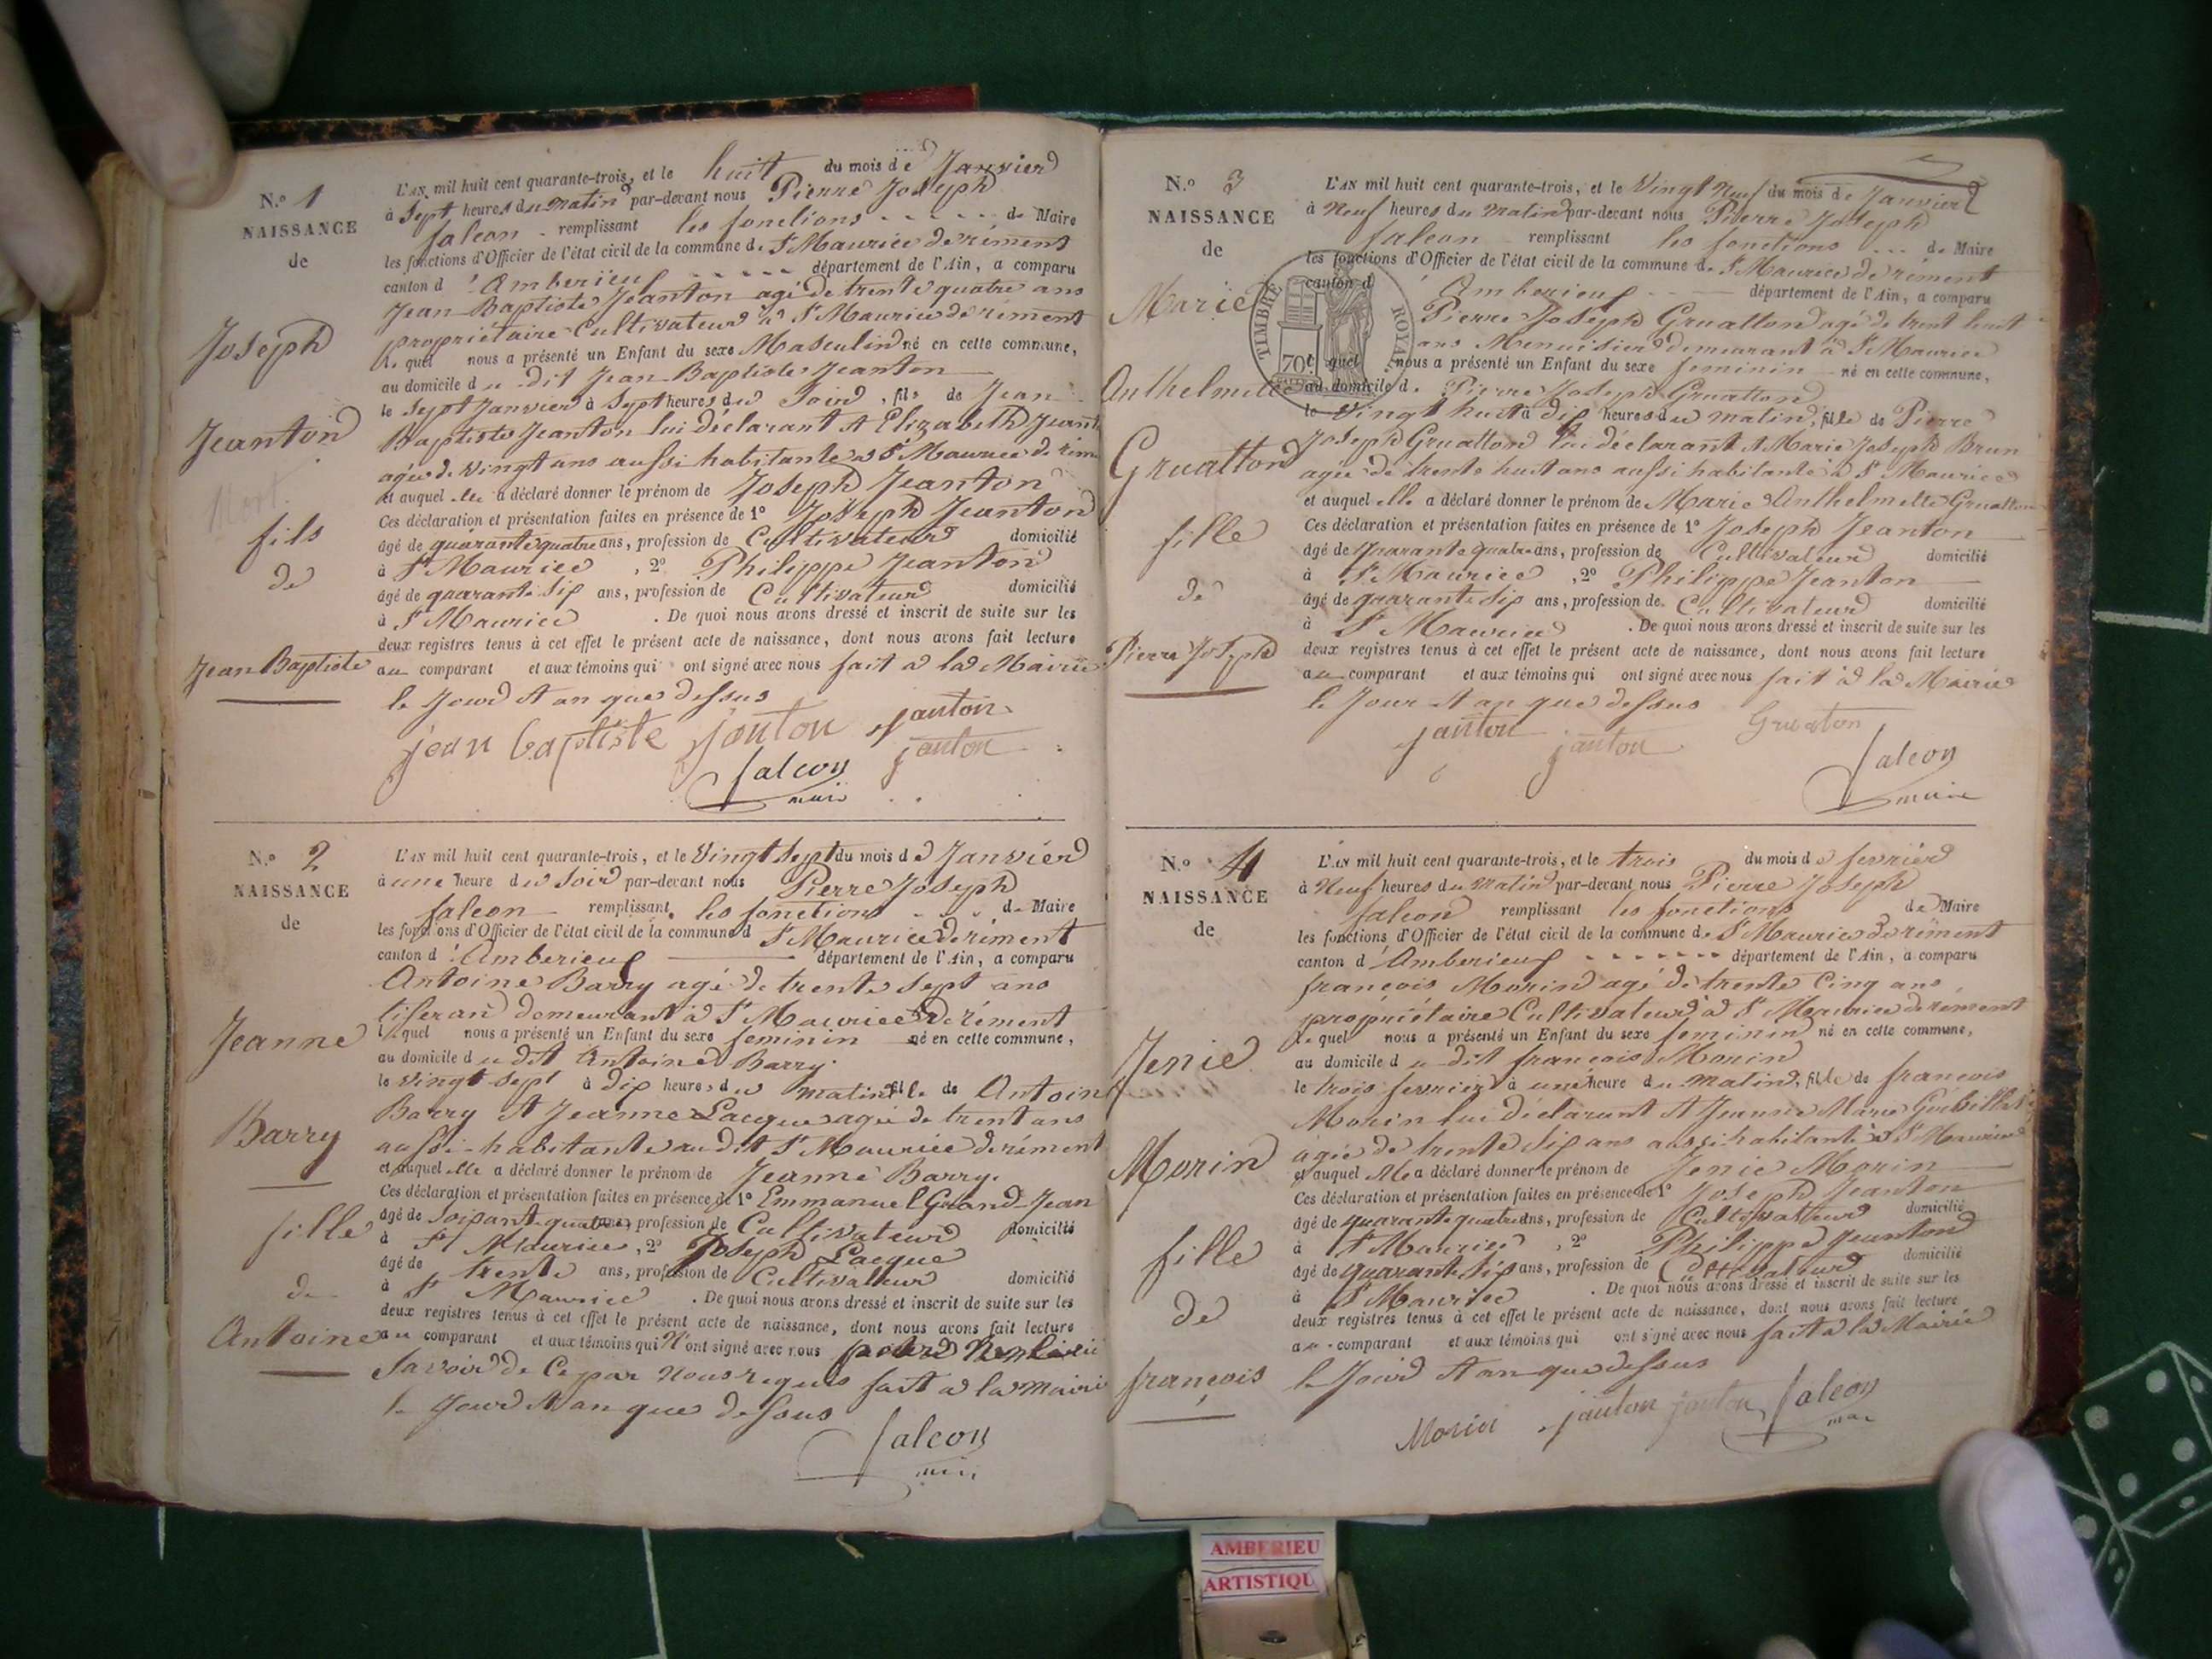 N.º 1
NAISSANCE
de
Joseph
Jeanton
Mort.
fils
de
Jean Baptiste
L'AN mil huit cent quarante-trois, et le huit du mois de Janvier
à Sept heures du matin par-devant nous Pierre Joseph
falcon - remplissant les fonctions - - - - - - de Maire
les fonctions d'Officier de l'état civil de la commune de St Maurice de rément
canton d'Amberieux - - - - - département de l'Ain, a comparu
Jean Baptiste Jeanton agé de trente quatre ans
propriétaire Cultivateur à St Maurice de rément
le quel nous a présenté un Enfant du sexe Masculin né en cette commune,
au domicile du dit Jean Baptiste Jeanton
le Sept Janvier à Sept heures du Soir, fils de Jean
Baptiste Jeanton lui déclarant et Elizabeth Jeant
agée de vingt ans aussi habitante à St Maurice de rém
et auquel elle a déclaré donner le prénom de Joseph Jeanton
Ces déclaration et présentation faites en présence de 1º Joseph Jeanton
âgé de quarante quatre ans, profession de Cultivateur domicilié
à St Maurice, 2º Philippe Jeanton
âgé de quarante six ans, profession de Cultivateur domicilié
à St Maurice. De quoi nous avons dressé et inscrit de suite sur les
deux registres tenus à cet effet le présent acte de naissance, dont nous avons fait lecture
au comparant et aux témoins qui ont signé avec nous fait à la Mairie
le Jour et an que dessus
jean baptiste janton janton
janton
falcon
maire
N.º 2
NAISSANCE
de
Jeanne
Barry
fille
de
Antoine
L'AN mil huit cent quarante-trois, et le Vingt Sept du mois de Janvier
à une heure du Soir par-devant nous Pierre Joseph
falcon remplissant les fonctions - - - de Maire
les fonctions d'Officier de l'état civil de la commune d St Maurice de rément
canton d'Amberieux département de l'Ain, a comparu
Antoine Barry agé de trente Sept ans
tiseran demeurant à St Maurice de rément
lequel nous a présenté un Enfant du sexe feminin né en cette commune,
au domicile du dit Antoine Barry
le Vingt Sept à dix heures du matin fille de Antoin
Barry et Jeanne Lacque agée de trent ans
aussi habitante au dit St Maurice de rément
et auquel elle a déclaré donner le prénom de Jeanne Barry.
Ces déclaration et présentation faites en présence de 1º Emmanuel Grand-Jean
âgé de Soixante quatre ans, profession de Cultivateur domicilié
à St Maurice, 2º Joseph Lacque
âgé de trente ans, profession de Cultivateur domicilié
à St Maurice. De quoi nous avons dressé et inscrit de suite sur les
deux registres tenus à cet effet le présent acte de naissance, dont nous avons fait lecture
au comparant et aux témoins qui N'ont signé avec nous pour
Savoir de Ce par Nous requis fait à la mairi
le Jour et an que dessus
falcon
maire
N.º 3
NAISSANCE
de
Marie
Anthelmette
Gruatton
fille
de
Pierre Joseph
TIMBRE ROYAL
70c
L'AN mil huit cent quarante-trois, et le Vingt Neuf du mois de Janvier
à Neuf heures du matin par-devant nous Pierre Joseph
falcon remplissant les fonctions - - - de Maire
les fonctions d'Officier de l'état civil de la commune de St Maurice de rément
canton d'Amberieux - - - département de l'Ain, a comparu
Pierre Joseph Gruatton agé de trent huit
ans Menuisier demeurant à St Maurice
le quel nous a présenté un Enfant du sexe feminin né en cette commune,
au domicile de Pierre Joseph Gruatton
le Vingt huit à dix heures du matin, fille de Pierre
Joseph Gruatton lui déclarant et Marie Joseph Brun
agée de trente huit ans aussi habitante à St Maurice
et auquel elle a déclaré donner le prénom de Marie Anthelmette Gruatton
Ces déclaration et présentation faites en présence de 1º Joseph Jeanton
âgé de quarante quatre ans, profession de Cultivateur domicilié
à St Maurice, 2º Philippe Jeanton
âgé de quarante six ans, profession de Cultivateur domicilié
à St Maurice. De quoi nous avons dressé et inscrit de suite sur les
deux registres tenus à cet effet le présent acte de naissance, dont nous avons fait lecture
au comparant et aux témoins qui ont signé avec nous fait à la Mairie
le Jour et an que dessus
janton janton Gruaton
falcon
maire
N.º 4
NAISSANCE
de
Jenie
Morin
fille
de
françois
L'AN mil huit cent quarante-trois, et le trois du mois de fevrier
à Neuf heures du matin par-devant nous Pierre Joseph
falcon remplissant les fonctions de Maire
les fonctions d'Officier de l'état civil de la commune de St Maurice de rément
canton d'Amberieux - - - - - - - département de l'Ain, a comparu
françois Morin agé de trente Cinq ans
propriétaire Cultivateur à St Maurice de rément
le quel nous a présenté un Enfant du sexe feminin né en cette commune,
au domicile du dit francois Morin
le trois fevrier à une heure du matin, fille de francois
Morin lui déclarant et Jeanne Marie
agée de trente six ans aussi habitante à St Maurice
et auquel elle a déclaré donner le prénom de Jenie Morin
Ces déclaration et présentation faites en présence de 1º Joseph Jeanton
âgé de quarante quatre ans, profession de Cultivateur domicilié
à St Maurice, 2º Philippe Jeanton
âgé de quarante six ans, profession de Cultivateur domicilié
à St Maurice. De quoi nous avons dressé et inscrit de suite sur les
deux registres tenus à cet effet le présent acte de naissance, dont nous avons fait lecture
au comparant et aux témoins qui ont signé avec nous fait à la Mairie
le Jour et an que dessus
Morin janton janton falcon
mai
AMBERIEU
ARTISTIQU